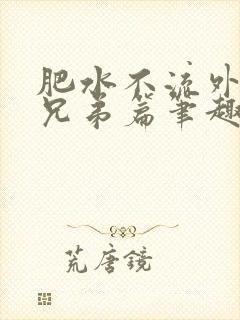 肥水不流外
兄弟篇笔趣
荒唐镜